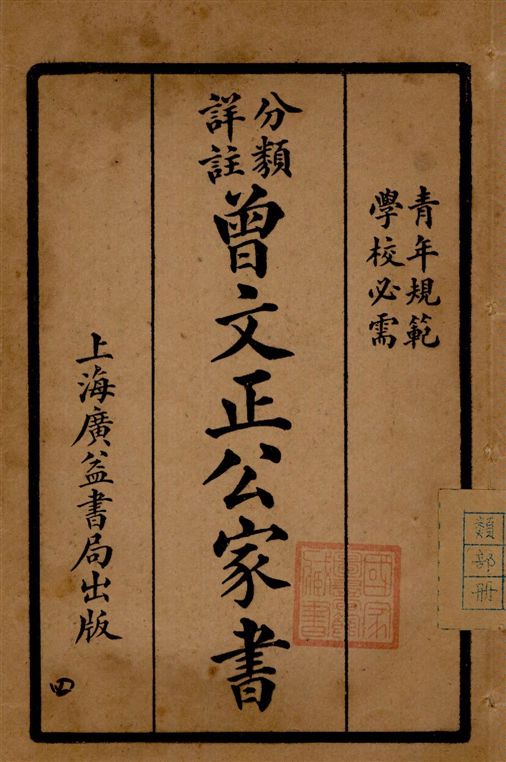 青年規範
學校必需
分類
詳註
曾文正公家書
上海廣益書局出版
四
國家圖書館藏書
類部冊